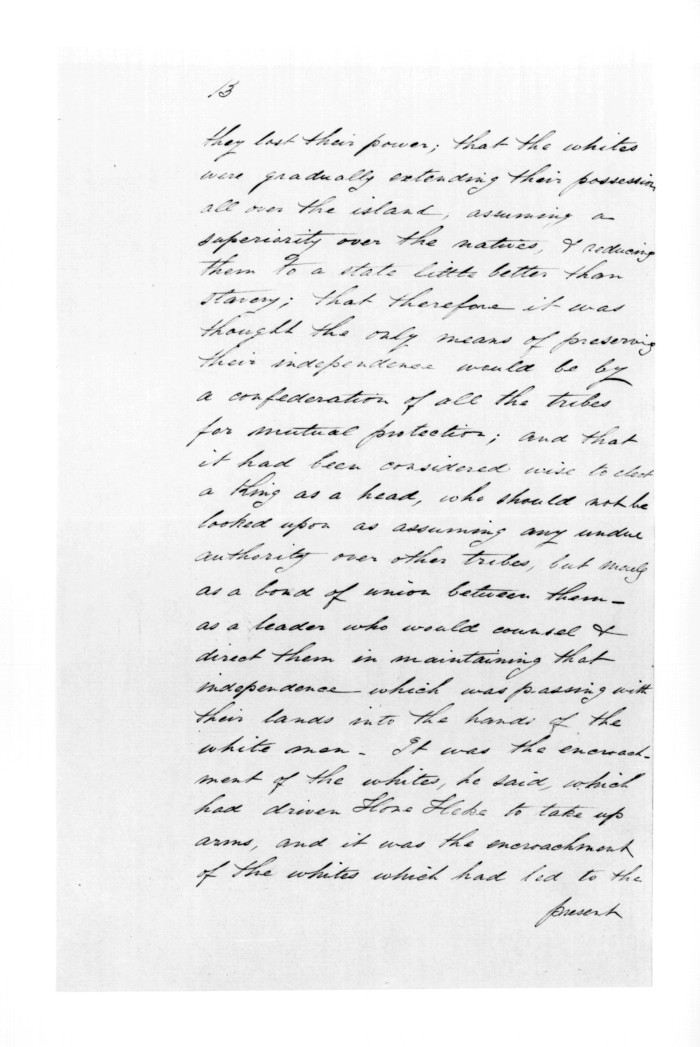 13
they lost their power; that the whites
were gradually extending their possession
all over the island, assuming a
superiority over the natives, & reducing
them to a state little better than
slavery; that therefore it was
thought the only means of preserving
their independence would be by
a confederation of all the tribes
for mutual protection; and that
it had been considered wise to elect
a King as a head, who should not be
looked upon as assuming any undue
authority over other tribes, but merely
as a bond of union between them—
as a leader who would counsel &
direct them in maintaining that
independence which was passing with
their lands into the hands of the
white men - It was the encroach-
ment of the whites, he said, which
had driven Hone Heke to take up
arms, and it was the encroachment
of the whites which had led to the
present